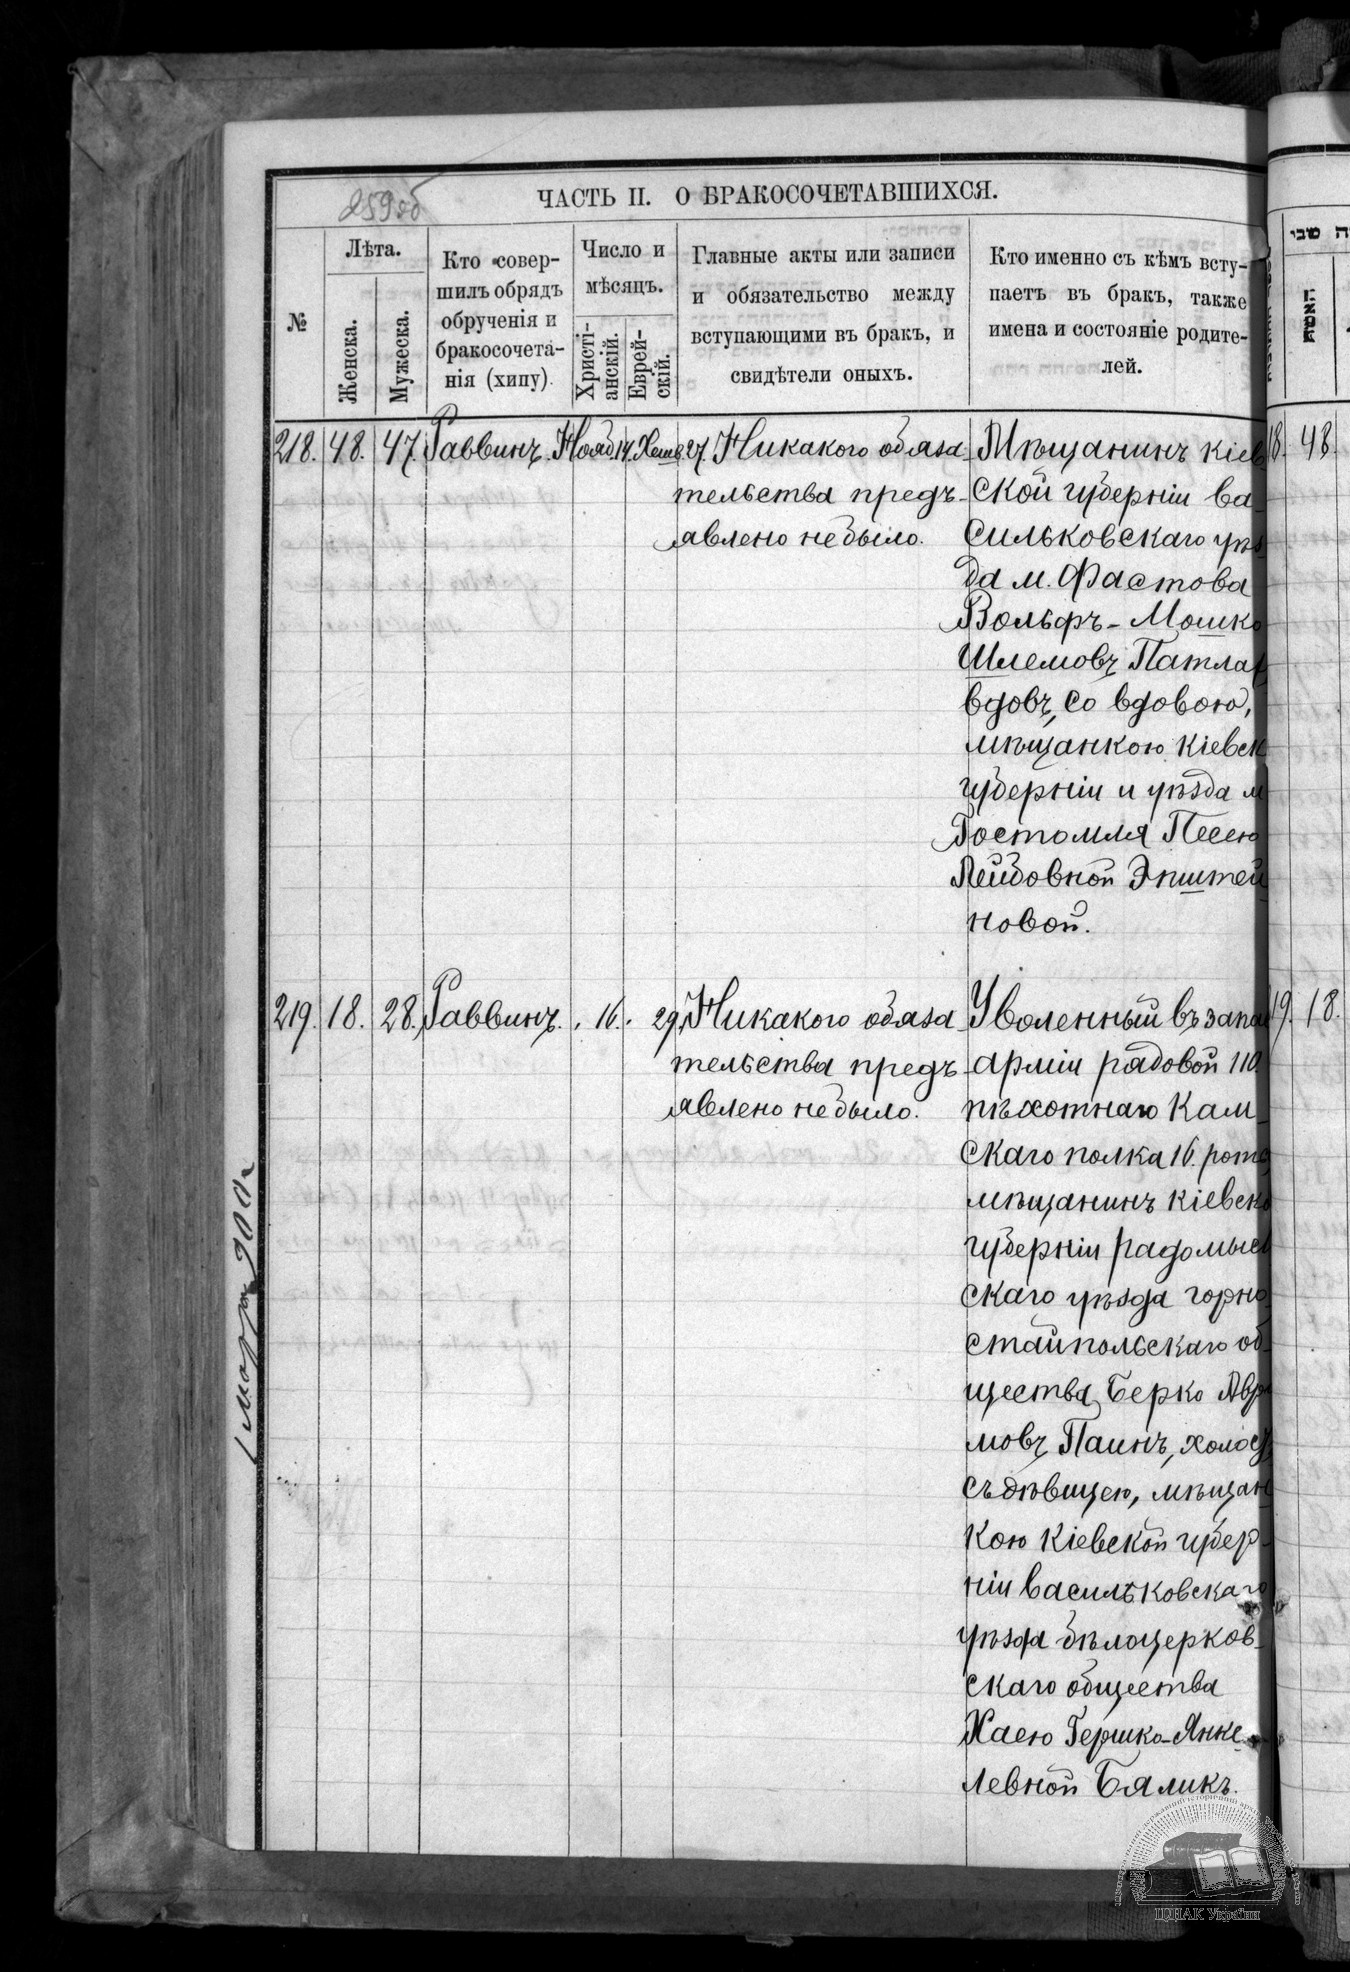 259об
ЧАСТЬ II. О БРАКОСОЧЕТАВШИХСЯ.
№
Лѣта.
Женска.
Мужеска.
Кто совер-
шилъ обрядъ
обрученія и
бракосочета-
нія (хипу).
Число и
мѣсяцъ.
Христі-
анскій.
Еврей-
скій.
Главные акты или записи
и обязательство между
вступающими въ бракъ, и
свидѣтели оныхъ.
Кто именно съ кѣмъ всту-
паетъ въ бракъ, также
имена и состояніе родите-
лей.
218. 48. 47. Раввинъ. Нояб. 14. Хешв. 27. Никакого обяза- Мѣщанинъ Кіев
тельства предъ- ской губерніи Ва-
явлено не было. сильковскаго уѣз
да м. Фастова
Вольфъ-Мошко
Шлемовъ Патла
вдовъ, со вдовою,
мѣщанкою Кіевск
губерніи и уѣзда м
Гостомля Песею
Лейбовной Эпштей
новой.
219. 18. 28. Раввинъ. 16. 29. Никакого обяза- Уволенный въ запас
тельства предъ- арміи рядовой 110.
явлено не было. пѣхотнаго Кам-
скаго полка 16. роты
мѣщанинъ Кіевско
губерніи радомысл
скаго уѣзда горно
стайпольскаго об-
щества Берко Авра
мовъ Паинъ, холост
съ дѣвицею, мѣщан
кою Кіевской губер-
ніи Васильковскаго
уѣзда бѣлоцерков-
скаго общества
Хаею Гершко-Янке-
левной Бяликъ.
18. 48.
19. 18.
האשה
ЦДІАК України